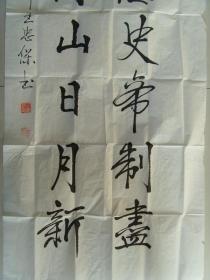 史帝制盡
山日月新
王忠保书